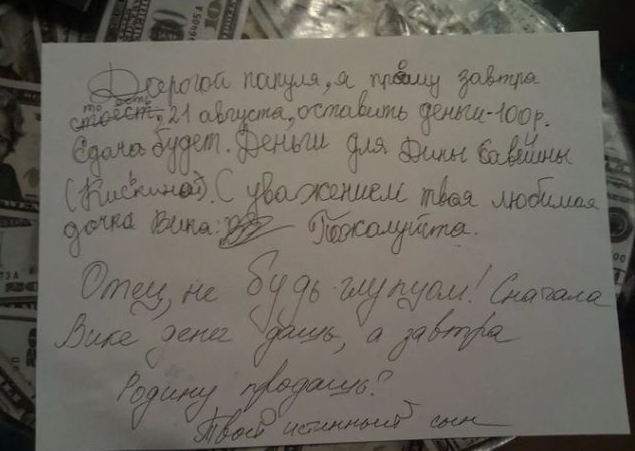 Дорогой папуля, я прошу завтра
то есть, 21 августа, оставить деньги-100р.
Сдача будет. Деньги для Дины Савейны
(Кискиной). С уважением твоя любимая
дочка Вика. Пожалуйста.
Отец, не будь глупцом! Сначала
Вике денег дашь, а завтра
Родину продашь?
Твой истинный сын